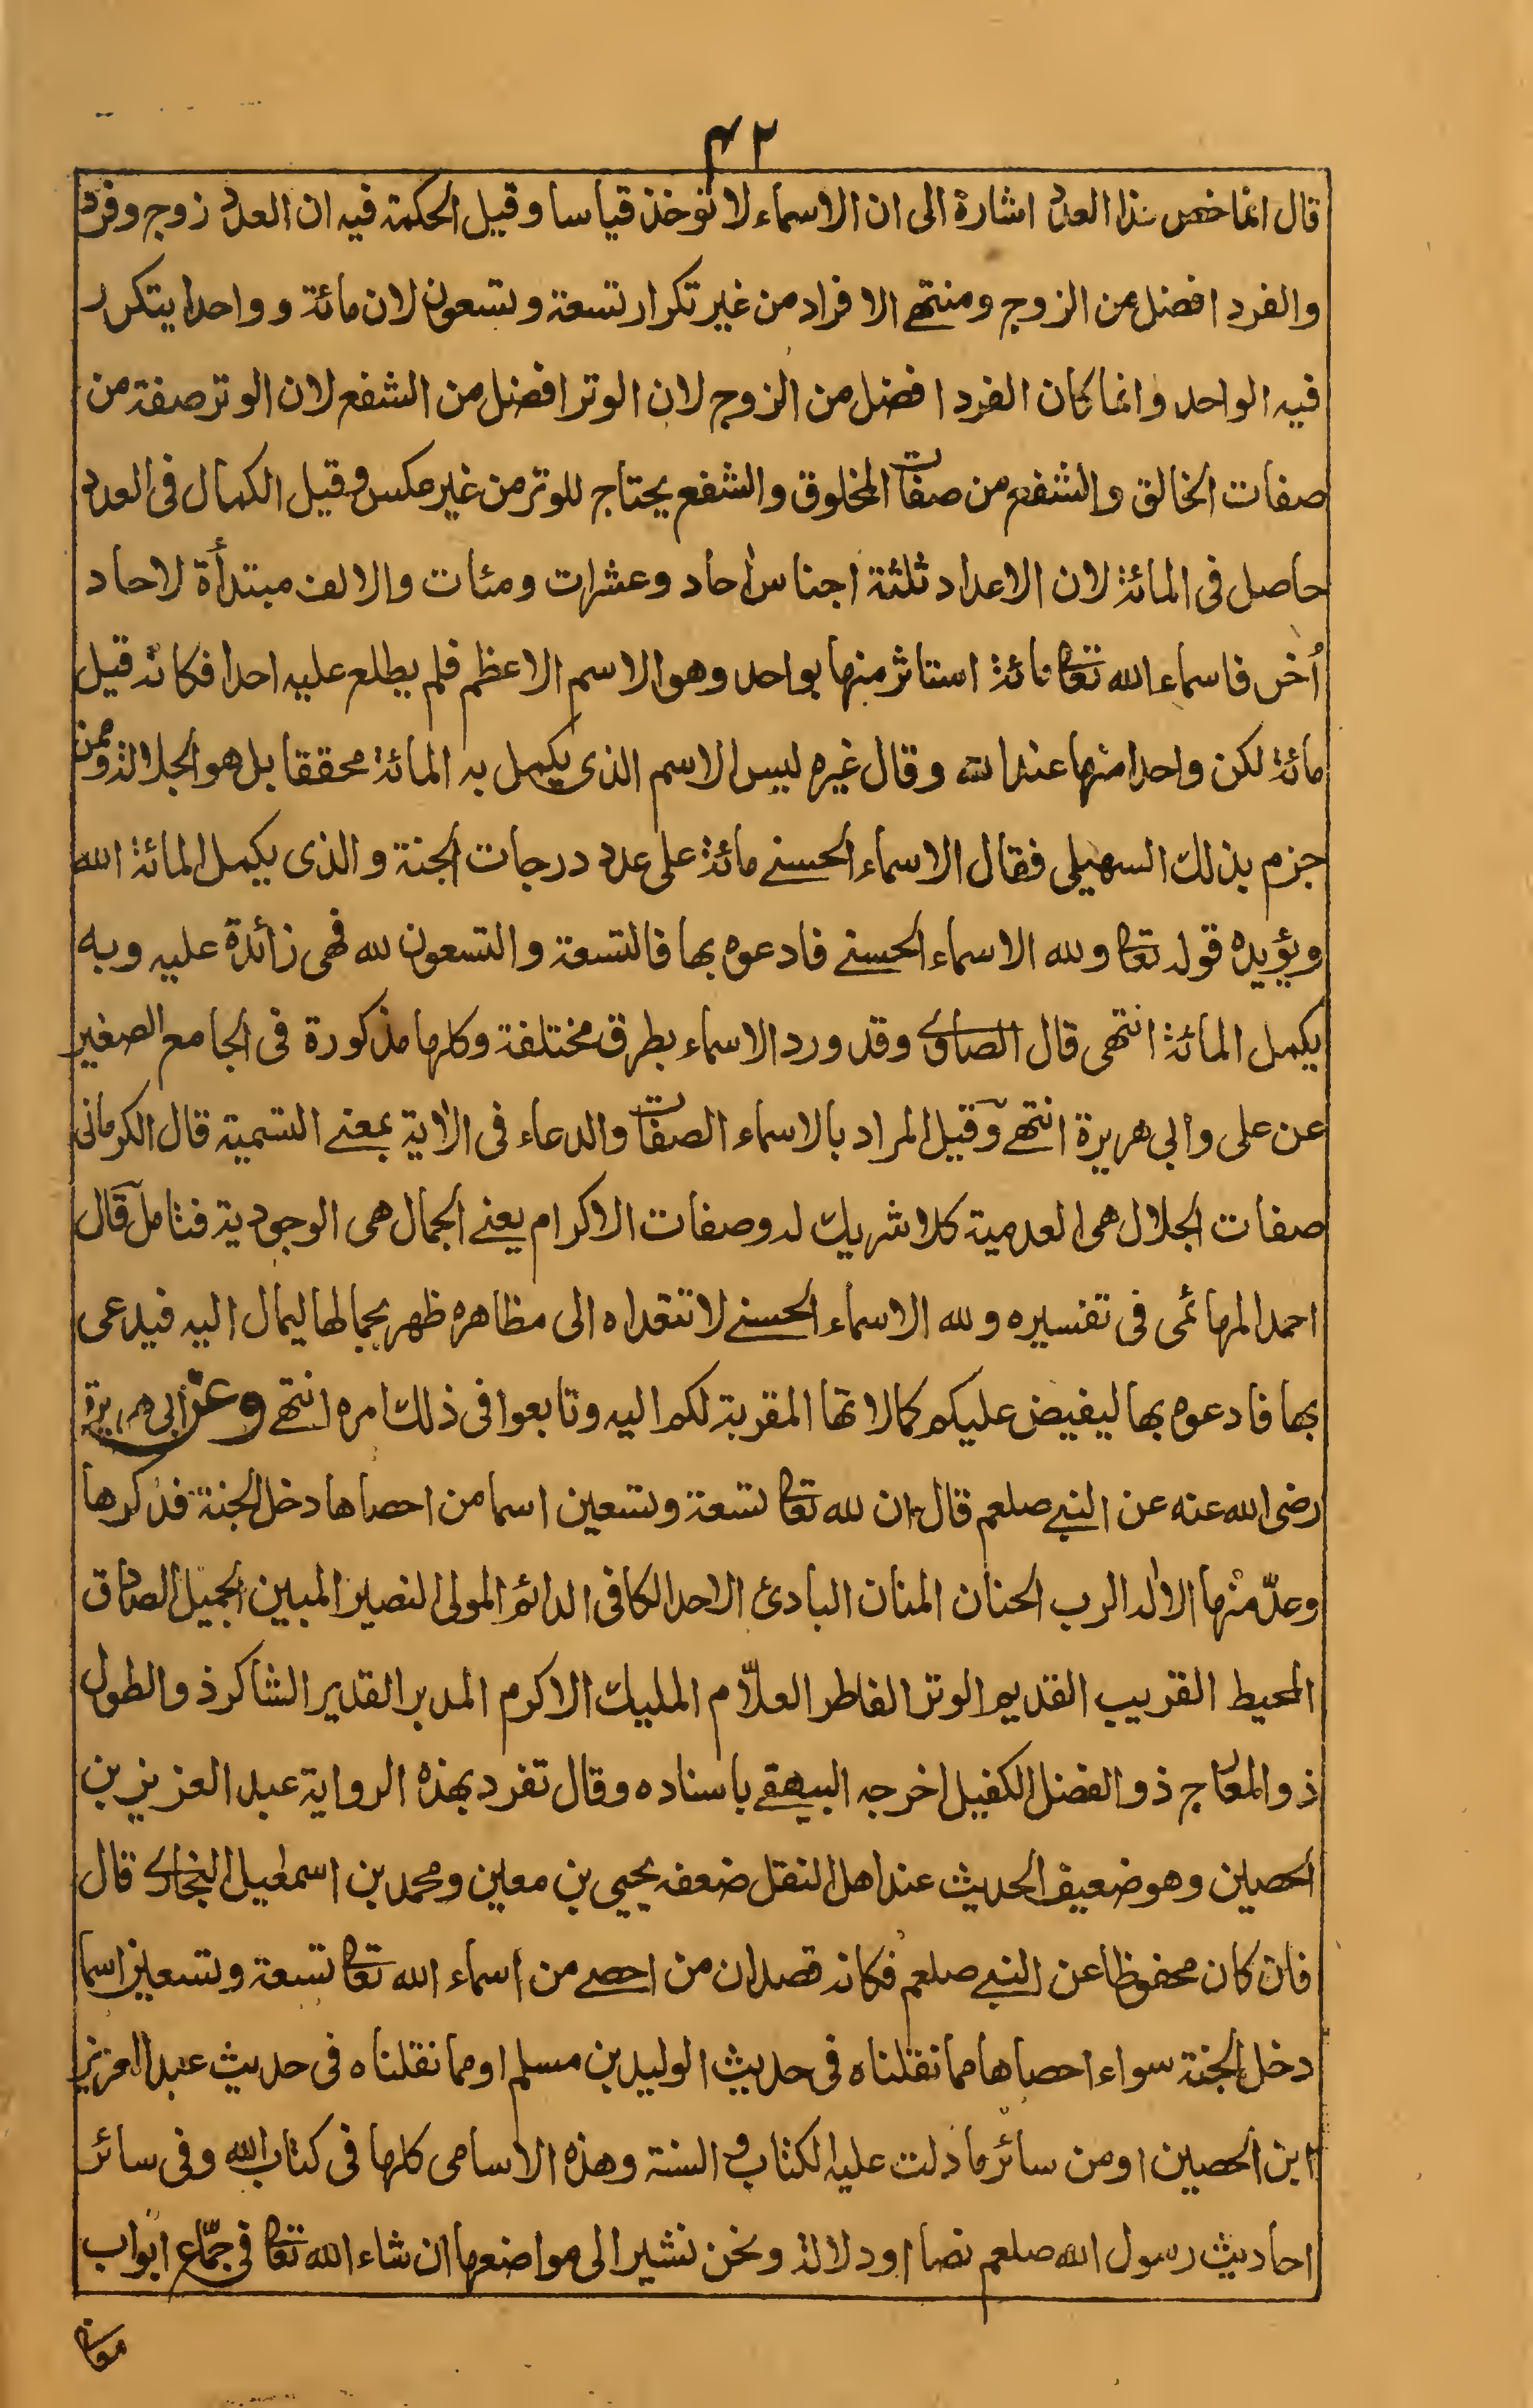 ٤٢
قال انما خص هذا العدد اشارة الى ان الاسماء لا توخذ قياسا وقيل الحكمة فيه ان العدد زوج وفرد
والفرد افضل من الزوج ومنتهى الافراد من غير تكرار تسعة وتسعون لان مائة وواحدا يتكرر
فيه الواحد وانما كان الفرد افضل من الزوج لان الوتر افضل من الشفع لان الوتر صفة من
صفات الخالق والشفع من صفات المخلوق والشفع يحتاج للوتر من غير عكس وقيل الكمال فى العدد
حاصل فى المائة لان الاعداد ثلثة اجناس احاد وعشرات ومئات والالف مبتدأة لاحاد
أخر فاسماء الله تعالى مائة استاثر منها بواحد وهو الاسم الاعظم فلم يطلع عليه احدا فكانه قيل
مائة لكن واحدا منها عند الله وقال غيره ليس الاسم الذى يكمل به المائة محققا بل هو الجلالة وممن
جزم بذلك السهيلى فقال الاسماء الحسنى مائة على عدد درجات الجنة والذى يكمل المائة الله
ويؤيده قوله تعالى ولله الاسماء الحسنى فادعوه بها فالتسعة والتسعون لله فهى زائدة عليه وبه
يكمل المائة انتهى قال الصاوى وقد ورد الاسماء بطرق مختلفة وكلها مذكورة فى الجامع الصغير
عن على وابى هريرة انتهى وقيل المراد بالاسماء الصفات والدعاء فى الاية بمعنى التسمية قال الكرمانى
صفات الجلال هى العدمية كلا شريك له وصفات الاكرام يعنى الجمال هى الوجودية فتامل قال
احمد المهائمى فى تفسيره ولله الاسماء الحسنى لا تتعداه الى مظاهره ظهر بجمالها ليمال اليه فيدعى
بها فادعوه بها ليفيض عليكم كمالاتها المقربة لكم اليه وتابعوا فى ذلك امره انتهى وعن ابى هريرة
رضى الله عنه عن النبى صلعم قال ان لله تعالى تسعة وتسعين اسما من احصاها دخل الجنة فذكرها
وعدّ منها الاله الرب الحنان المنان البادئ الاحد الكافى الدائم المولى النصير المبين الجميل الصادق
المحيط القريب القديم الوتر الفاطر العلّام المليك الاكرم المدبر القدير الشاكر ذو الطول
ذو المعارج ذو الفضل الكفيل اخرجه البيهقى باسناده وقال تفرد بهذه الرواية عبد العزيز بن
الحصين وهو ضعيف الحديث عند اهل النقل ضعفه يحيى بن معين ومحمد بن اسمعيل البخارى قال
فان كان محفوظا عن النبى صلعم فكانه قصد ان من احصى من اسماء الله تعالى تسعة وتسعين اسما
دخل الجنة سواء احصاها مما نقلناه فى حديث الوليد بن مسلم او مما نقلناه فى حديث عبد العزيز
ابن الحصين او من سائر ما دلت عليه الكتاب والسنة وهذه الاسامى كلها فى كتاب الله وفى سائر
احاديث رسول الله صلعم نصا او دلالة ونحن نشير الى مواضعها ان شاء الله تعالى فى جمّاع ابواب